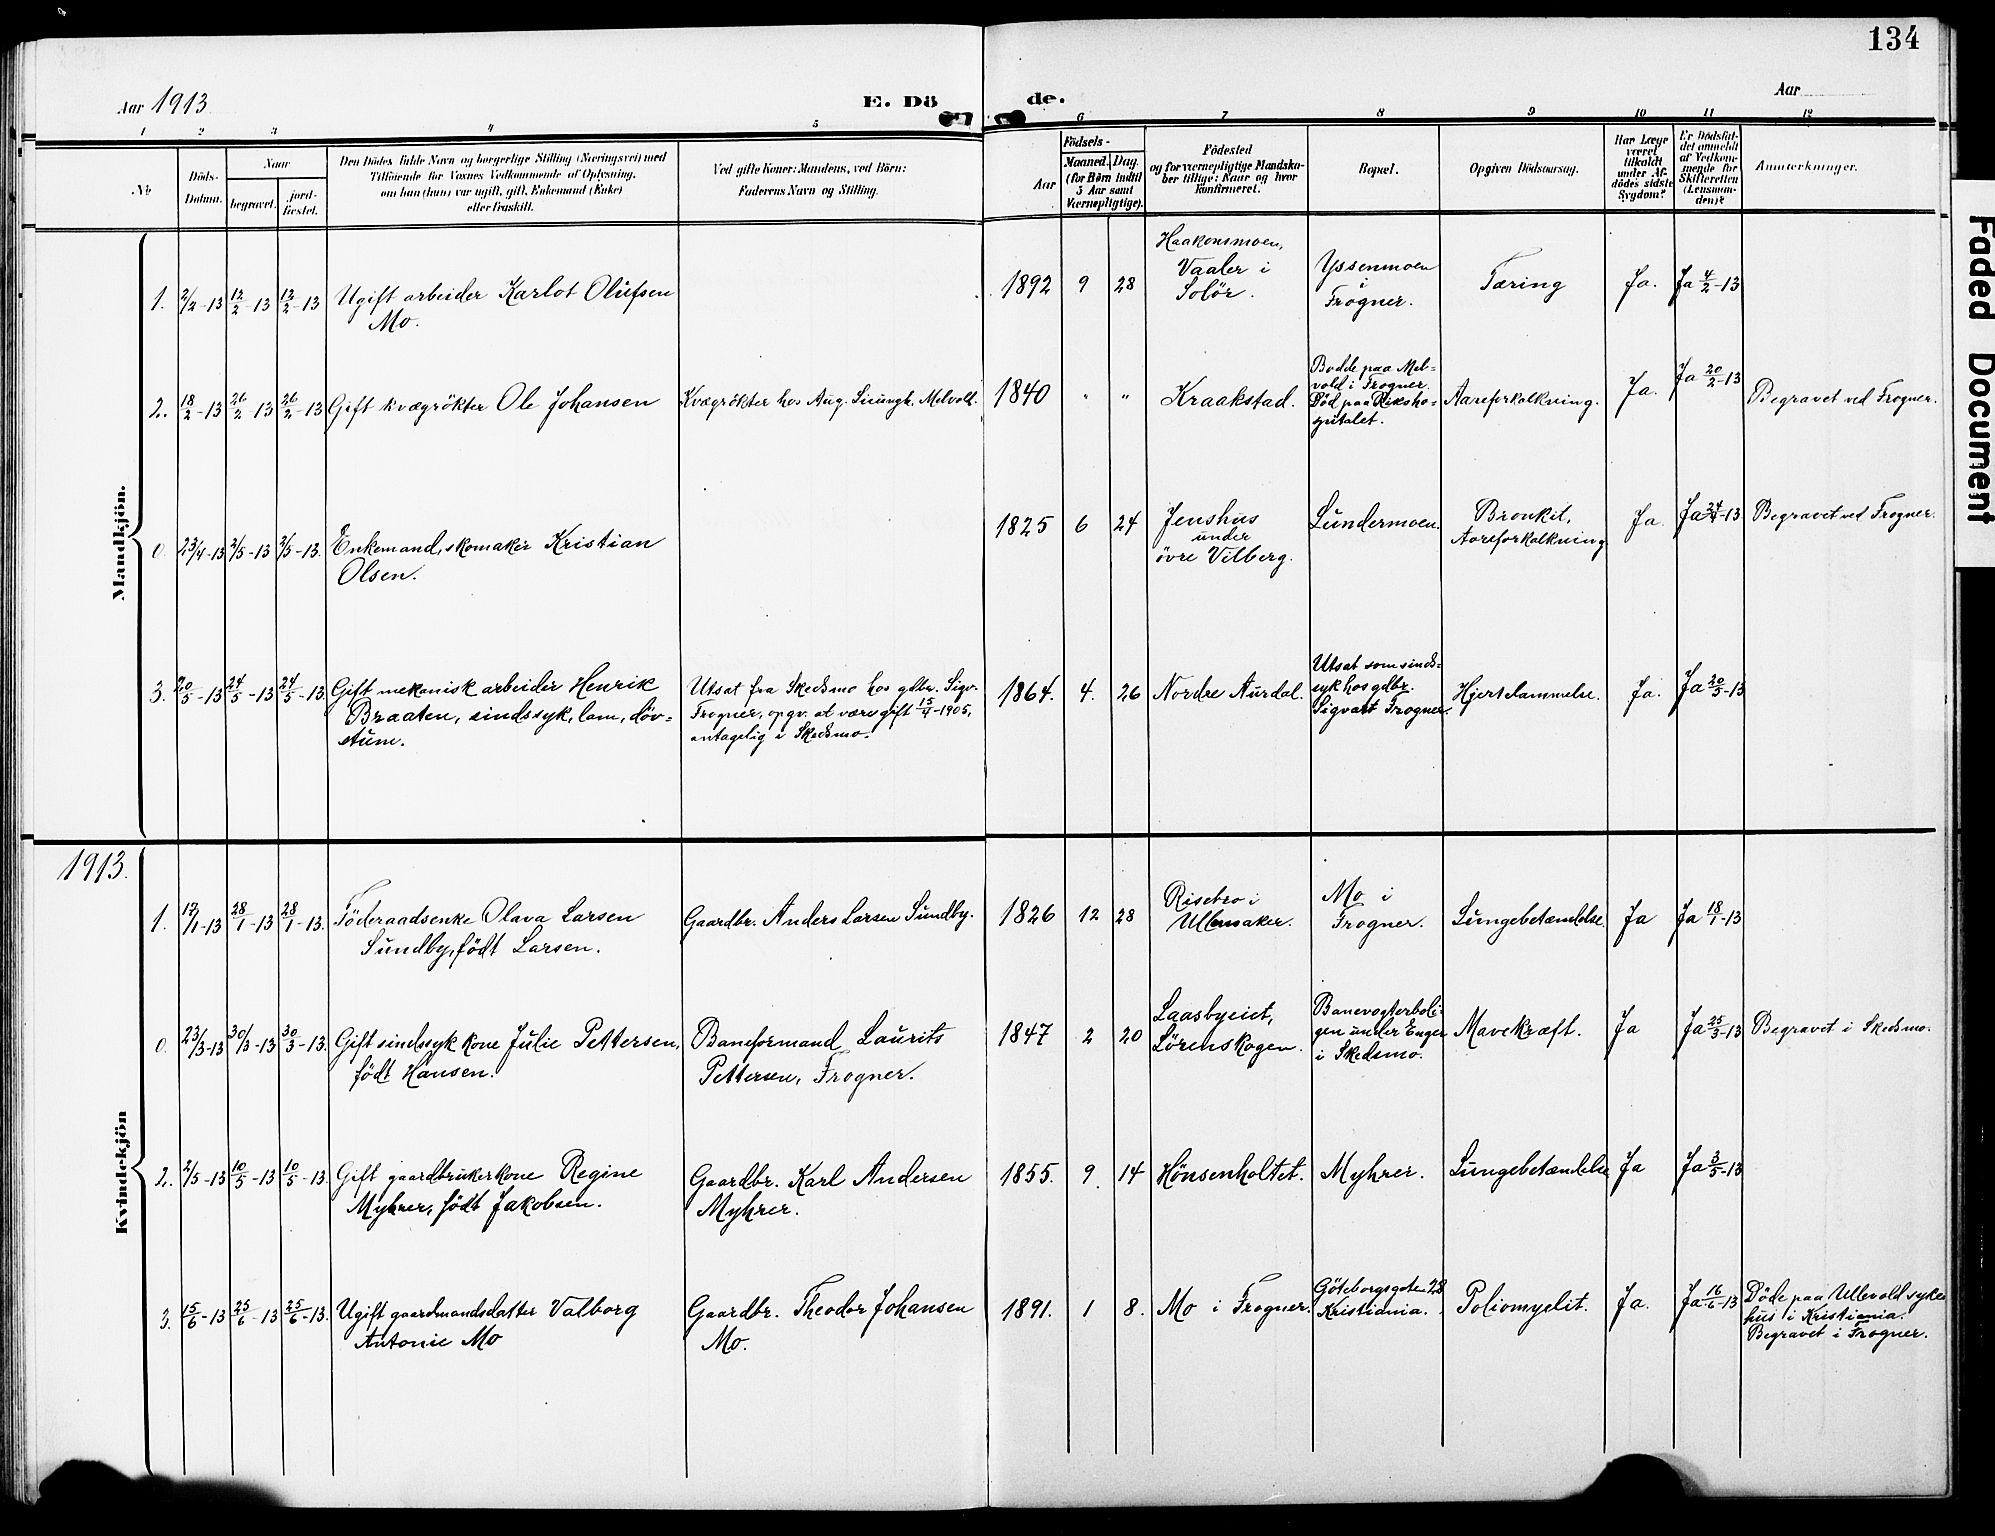 134
Aar 1913
E. Dö
de.
Aar
1 2 3 4 5 6 7 8 9 10 11 12
No
Döds-
Datum.
Naar
begravet.
jord-
fæstet.
Den Dödes fulde Navn og borgerlige Stilling (Næringsvei) med
Tilföiende for Voxnes Vedkommende af Oplysning,
om han (hun) var ugift, gift, Enkemand (Enke)
eller fraskilt.
Ved gifte Koner: Mandens, ved Börn:
Faderens Navn og Stilling.
Aar
Födsels-
Maaned. Dag.
(for Börn indtil
5 Aar samt
Værnepligtige).
Födested
og for værnepligtige Mandska-
ber tillige: Naar og hvor
konfirmeret.
Bopæl.
Opgiven Dödsaarsag.
Har Læge
været
tilkaldt
under Af-
dödes sidste
Sygdom?
Er Dödsfal-
det anmeldt
af Vedkom-
mende for
Skifteretten
(Lensman-
den)?
Anmærkninger.
Mandkjön.
1. 2/2-13 12/2-13 12/2-13 Ugift arbeider Karlot Olufsen
Mo.
1892 9 28
Haakonsmoen,
Vaaler i
Solör.
Yssenmoen
i
Frogner.
Tæring Ja. Ja 4/2-13
2. 18/2-13 26/2-13 26/2-13 Gift kvægrökter Ole Johansen
Kvægrökter hos Aug. Melvold.
1840 " " Kraakstad.
Bodde paa Mel-
vold i Frogner.
Död paa Riksho-
spitalet.
Aareforkalkning. Ja. Ja 20/2-13 Begravet ved Frogner.
0. 23/4-13 2/5-13 2/5-13. Enkemand, skomaker Kristian
Olsen.
1825 6 24 Jenshus
under
övre Vilberg.
Lundermoen.
Bronkit,
Aareforkalkning
Ja. Ja 24/4-13 Begravet ved Frogner.
3. 20/5-13 24/5-13 24/5-13 Gift mekanisk arbeider Henrik
Braaten, sindssyk, lam, döv-
stum.
Utsat fra Skedsmo hos gdbr. Sigv.
Frogner, opgv. at være gift 15/4-1905,
antagelig i Skedsmo.
1864. 4. 26 Nordre Aurdal.
Utsat som sinds-
syk hos gdbr.
Sigvart Frogner.
Hjertelammelse. Ja. Ja 20/5-13
1913.
Kvindekjön
1. 17/1-13 28/1-13 28/1-13. Föderaadsenke Olava Larsen
Sundby, födt Larsen.
Gaardbr. Anders Larsen Sundby.
1826 12 28
Risebro i
Ullensaker.
Mo i
Frogner.
Lungebetændelse. Ja Ja 18/1-13
0. 23/3-13 30/3-13 30/3-13. Gift sindssyk kone Julie Pettersen,
födt Hansen.
Baneformand Laurits
Pettersen, Frogner.
1847 2 20
Laasbyeiet,
Lörenskogen.
Banevogterboli-
gen under Enger
i Skedsmo.
Mavekræft. Ja Ja 25/3-13 Begravet i Skedsmo.
2. 2/5-13 10/5-13 10/5-13. Gift gaardbrukerkone Regine
Myhrer, födt Jakobsen.
Gaardbr. Karl Andersen
Myhrer.
1855. 9. 14 Hönsenholtet. Myhrer. Lungebetændelse Ja Ja 3/5-13
3. 15/6-13 25/6-13 25/6-13. Ugift gaardmandsdatter Valborg
Antonie Mo
Gaardbr. Theodor Johansen
Mo.
1891. 1 8. Mo i Frogner.
Göteborgsgaten 28
Kristiania.
Poliomyelit. Ja. Ja 16/6-13
Döde paa Ullevold syke
hus i Kristiania.
Begravet i Frogner.
Faded Document